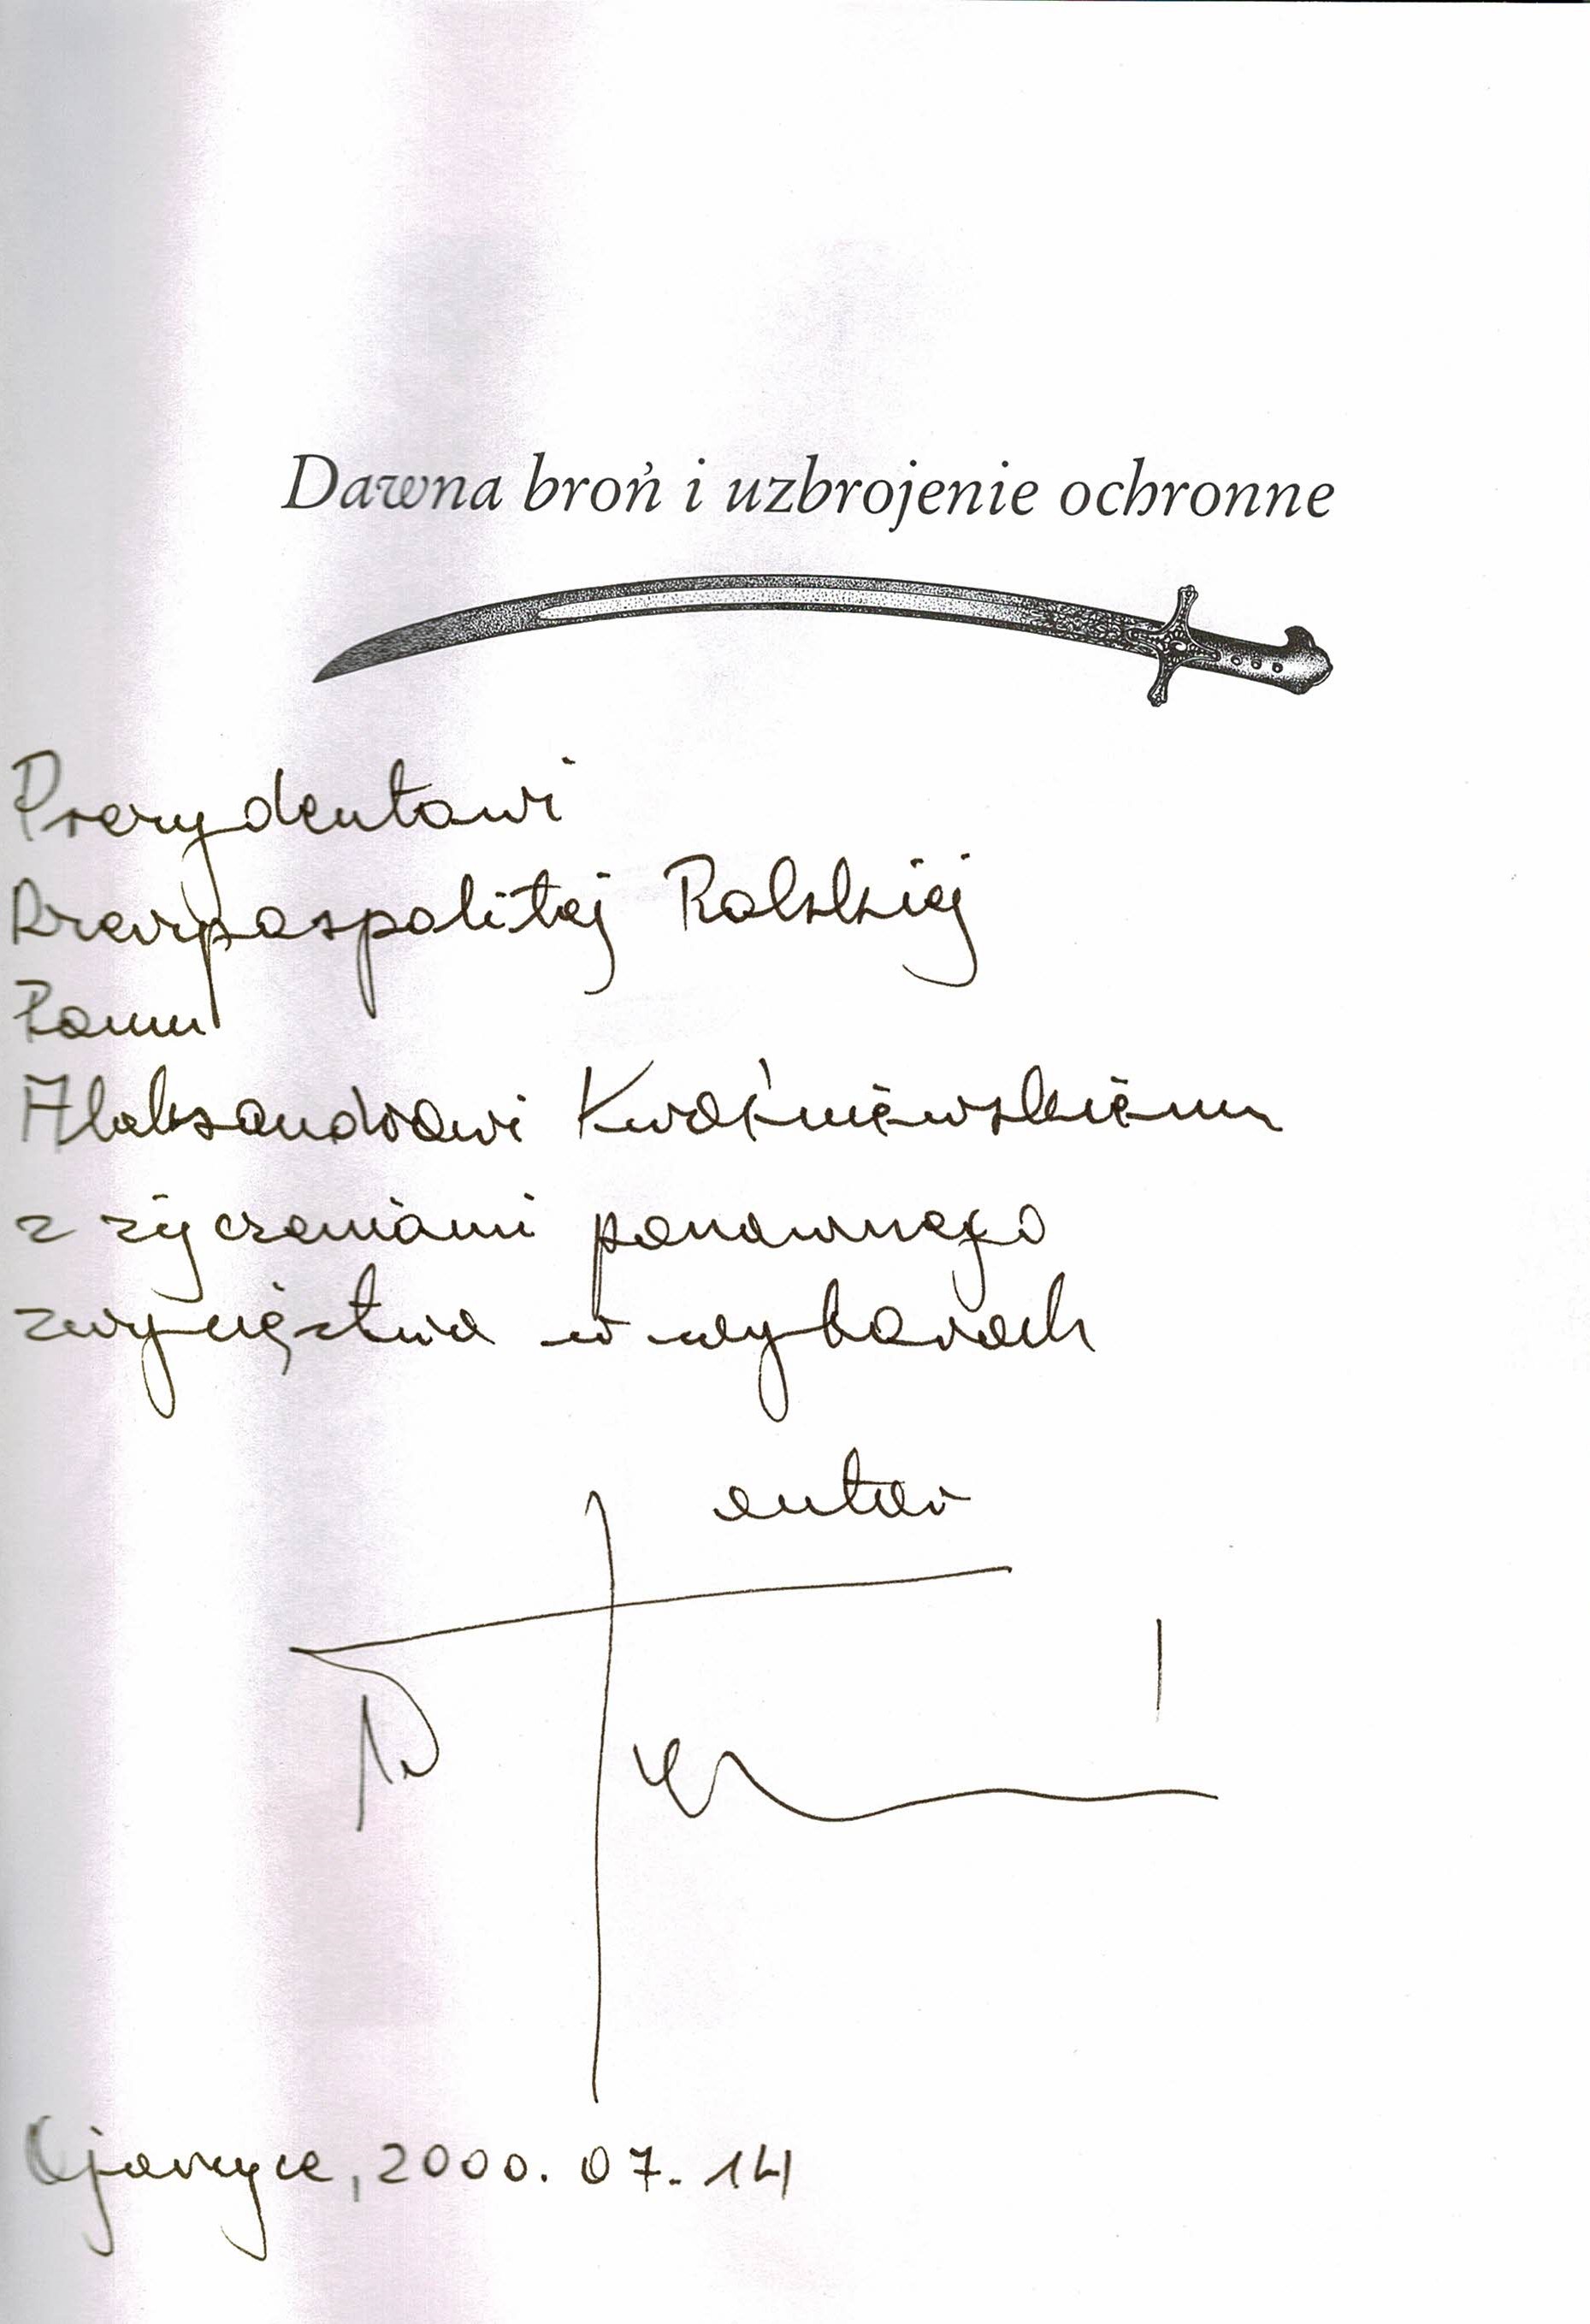 Dawna broń i uzbrojenie ochronne
Prezydentowi
Rzeczypospolitej Polskiej
Panu
Aleksandrowi Kwaśniewskiemu
z życzeniami ponownego
zwycięstwa w wyborach
autor
2000.07.14